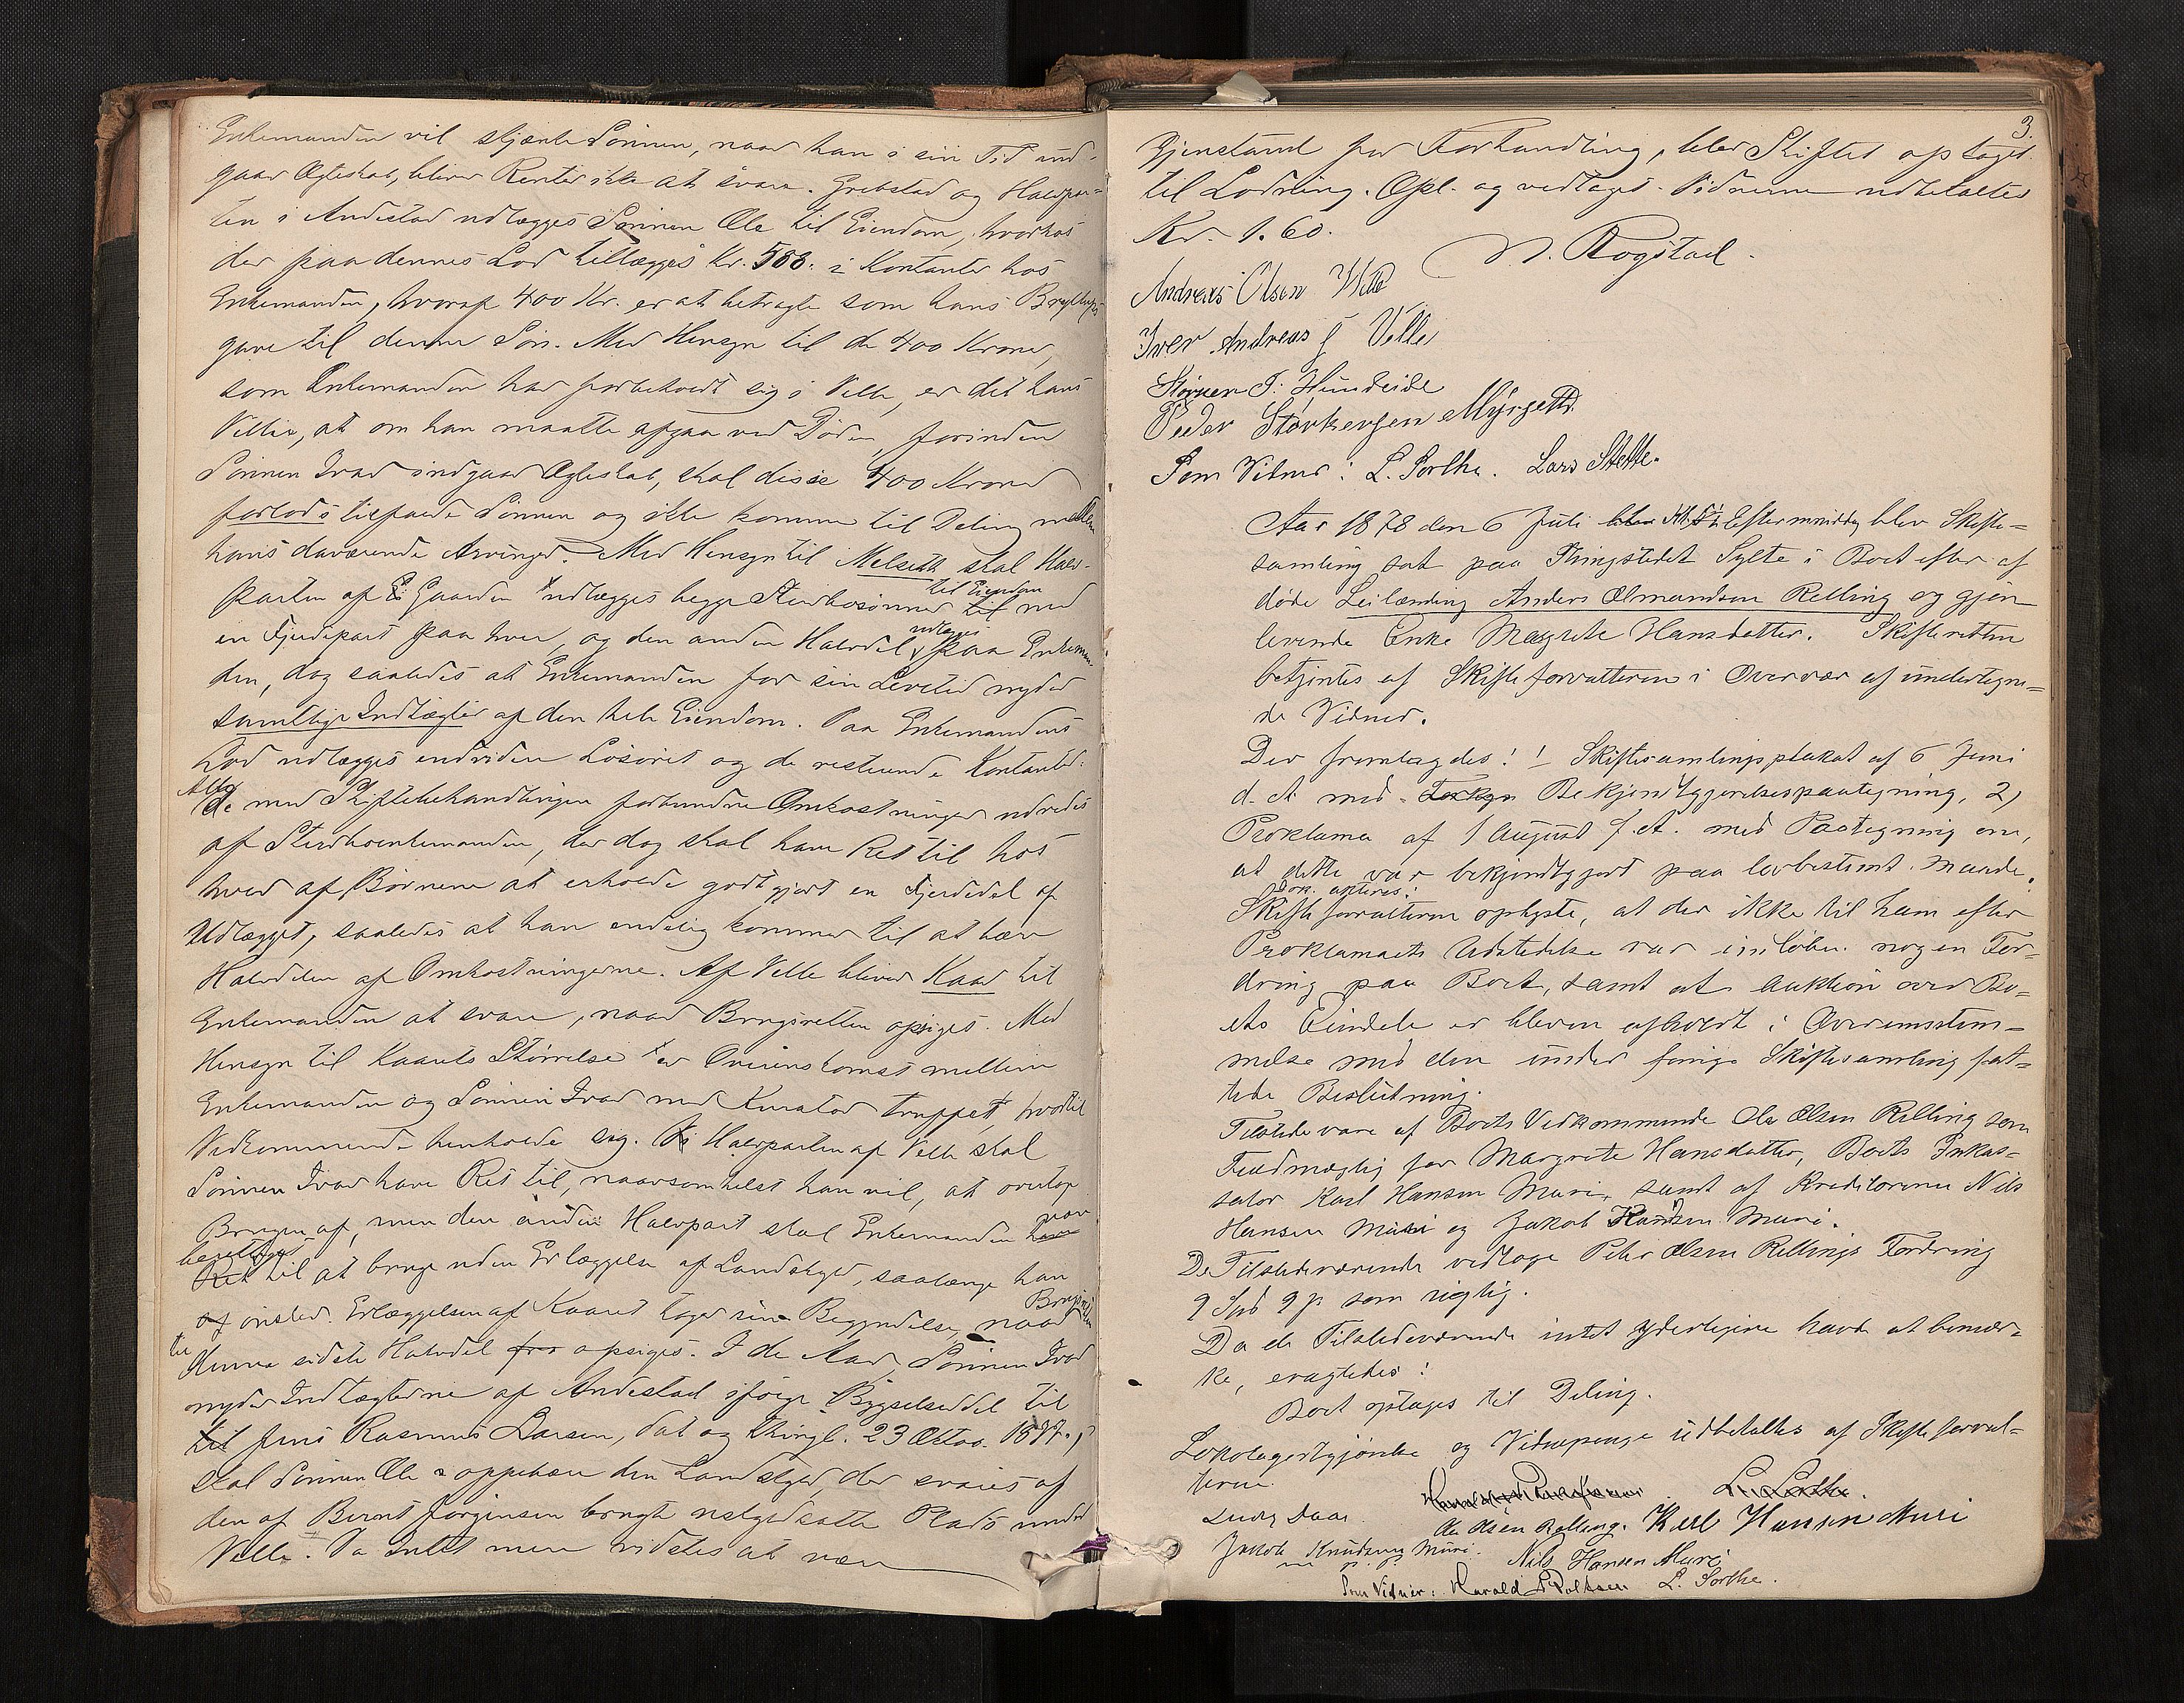 Enkemanden vil skjænke Sønnen, naar han i sin Tid ind-
gaar Ægteskab, bliver Renter ikke at svare. Grebstad og Halvpar-
ten i Andestad udlægges Sønnen Ole til Eiendom, hvorhos
der paa dennes Lod tillægges Kr. 508. i Kontanter hos
Enkemanden, hvoraf 400 Kr. er at betragte som hans Bryllups
gave til denne Søn. Med Hensyn til de 400 Kroner,
som Enkemanden har forbeholdt sig i Velle, er det hans
Villie, at om han maatte afgaa ved Døden, forinden
Sønnen Ivar indgaar Ægteskab, skal disse 400 Kroner
forlods tilfalde Sønnen og ikke komme til Deling mellem
hans daværende Arvinger. Med Hensyn til Melseth skal Halv-
parten af Gaarden udlægges begge Sterbosønner til Eiendom med
en Fjerdepart paa hver, og den anden Halvdel udlægges paa Enkeman-
den, dog saaledes at Enkemanden for sin Levetid nyder
samtlige Indtægter af den hele Eiendom. Paa Enkemandens
Lod udlægges endvidere Løsøret og de resterende Kontanter.
Alle de med Skiftebehandlingen forbundne Omkostninger udredes
af Sterboenkemanden, der dog skal have Ret til hos
hver af Børnene at erholde godtgjort en Fjerdedel af
Udlægget, saaledes at han endelig kommer til at bære
Halvdelen af Omkostningerne. Af Velle bliver Kaar til
Enkemanden at svare, naar Brugsretten opsiges. Med
Hensyn til Kaarets Størrelse er Overenskomst mellem
Enkemanden og Sønnen Ivar med Kurator truffet, hvortil
Vedkommende henholde sig. Halvparten af Velle skal
Sønnen Ivar have Ret til, naarsomhelst han vil, at overtage
Brugen af, men den anden Halvpart skal Enkemanden være
berettiget til at bruge uden Erlæggelse af Landskyld, saalænge han
ønsker. Erlæggelsen af Kaaret tager sin Begyndelse, naar Brugsretten
til denne sidste Halvdel opsiges. I de Aar, Sønnen Ivar
nyder Indtægterne af Andestad ifølge Bygselseddel til
Jens Rasmus Larsen, dat og thingl. 23 Oktbr.
skal Sønnen Ole oppebære den Landskyld, der svares af
den af Bernt Jørgensen brugte uskyldsatte Plads under
Velle. Da Intet mere vidstes at være
3.
Gjenstand for Forhandling, blev Skiftet optaget
til Lodning. Opl. og vedtaget. Vidnerne udbetaltes
Kr. 1.60.
N. Rogstad.
Andreas Olsen Velle
Iver Andreas Velle
Størker T. Hundeide
Peder Størkersen Myrseth
Som Vidner: L. Sorthe. Lars Stette.
Aar 1878 den 6 Juli Eftermiddag blev Skifte-
samling sat paa Thingstedet Sylte i Boet efter af
døde Leilænding Anders Olmandsen Relling og gjen
levende Enke Margrete Hansdatter. Skifteretten
betjentes af Skifteforvalteren i Overvær af undertegne-
de Vidner.
Der fremlagdes: 1 Skiftesamlingsplakat af 6 Juni
d. A. med Bekjendtgjørelsespaategning, 2)
Proklama af 1 August f. A. med Paategning om,
at dette var bekjendtgjort paa lovbestemt Maade.
Dok. akteres:
Skifteforvalteren oplyste, at der ikke til ham efter
Proklamaets Udstedelse var indløben nogen For-
dring paa Boet, samt at Auktion over Bo-
ets Eiendele er bleven afholdt i Overensstem-
melse med den under forrige Skiftesamling fat-
tede Beslutning.
Tilstede vare af Boets Vedkommende Ole Olsen Relling som
Fuldmægtig for Margrete Hansdatter, Boets Inkas-
sator Karl Hansen Muri, samt af Kreditorerne Nils
Hansen Muri og Jakob Knudsen Muri.
De Tilstedeværende vedtoge Peder Olsen Rellings Fordring
9 Spd 9 ß som rigtig.
Da de Tilstedeværende intet yderligere havde at bemær-
ke, eragtedes:
Boet optages til Deling.
Lokalegodtgjørelse og Vidnepenge udbetaltes af Skifteforval-
teren.
Ludv. Daae. Ole Olsen Relling. Karl Hansen Muri
Jakob Knudsen Muri. Nils Hansen Muri
Som Vidner: Harald L. Sorthe.